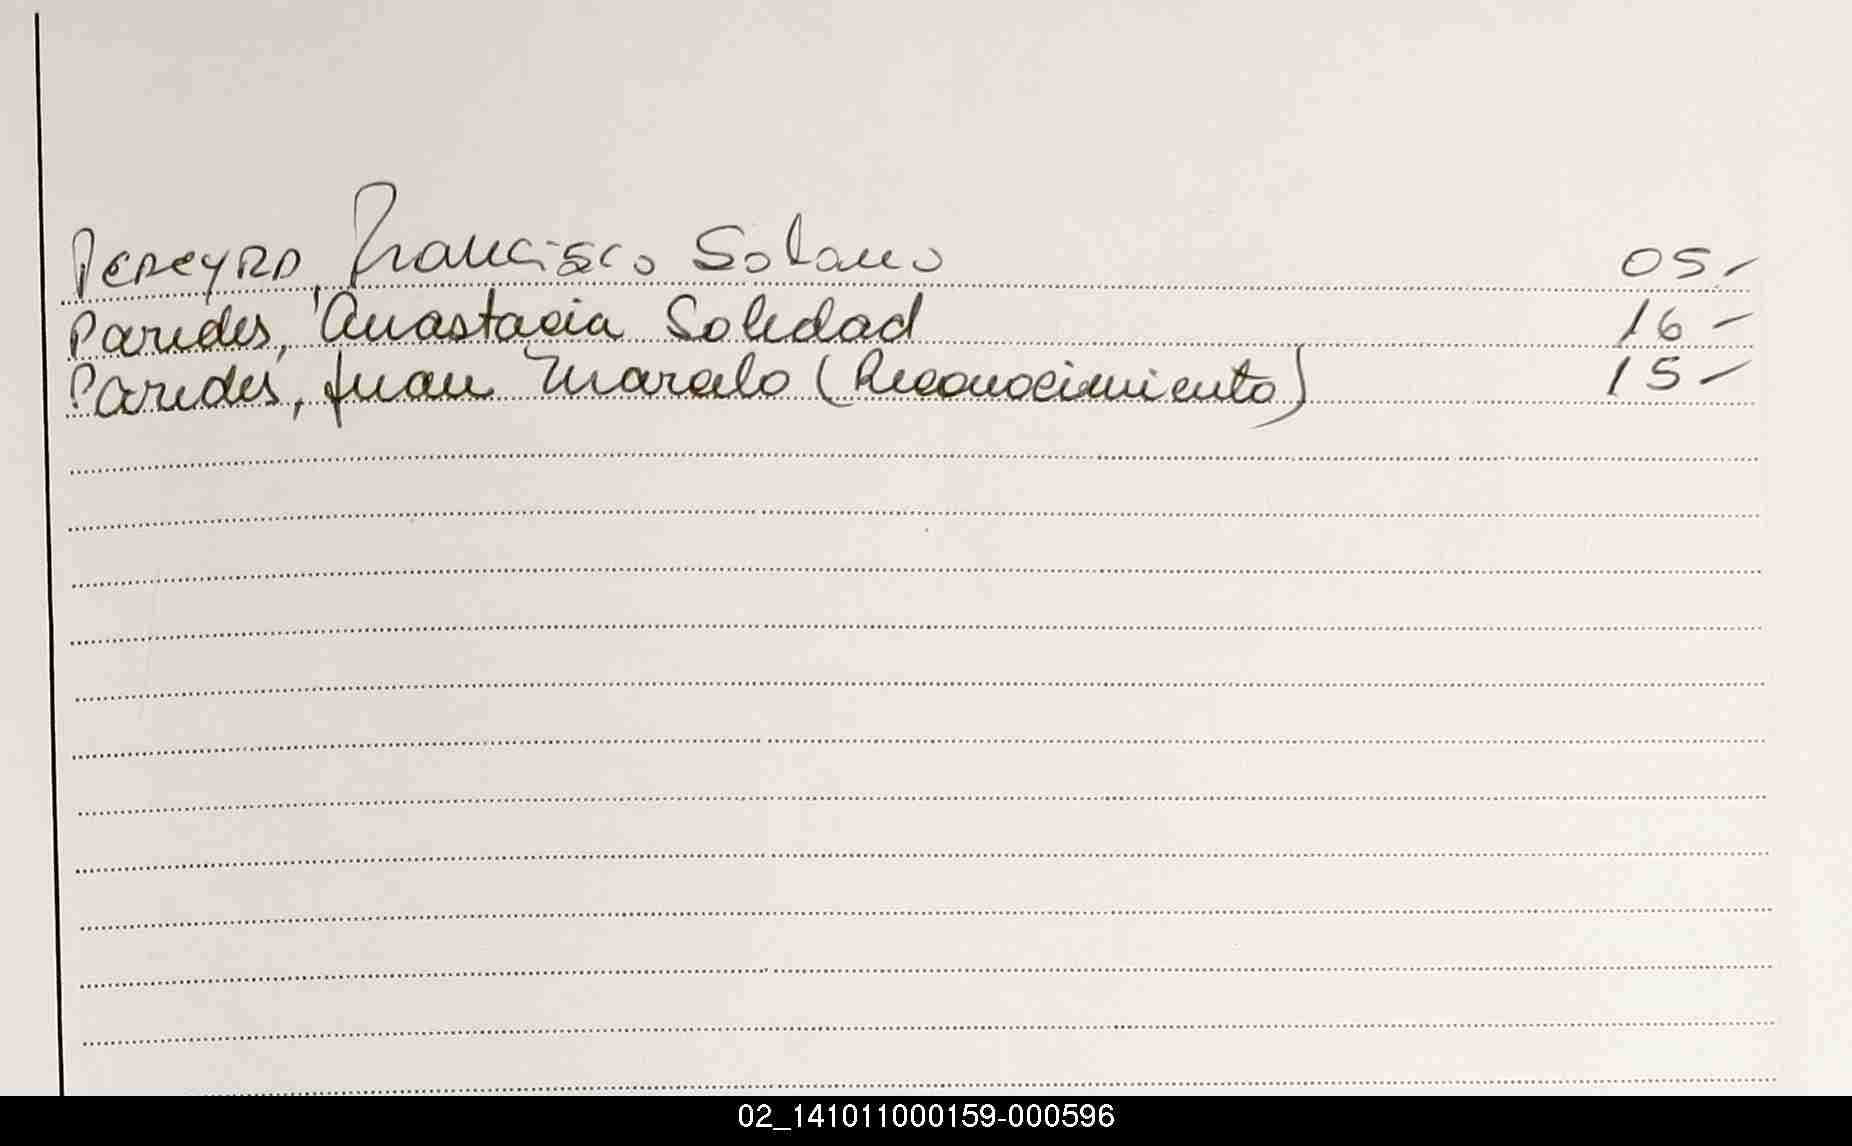 Pereyra, Francisco Solano 05-
Paredes, Anastacia Soledad 16-
Paredes, Juan Marcelo (Reconocimiento) 15-
02_141011000159-000596